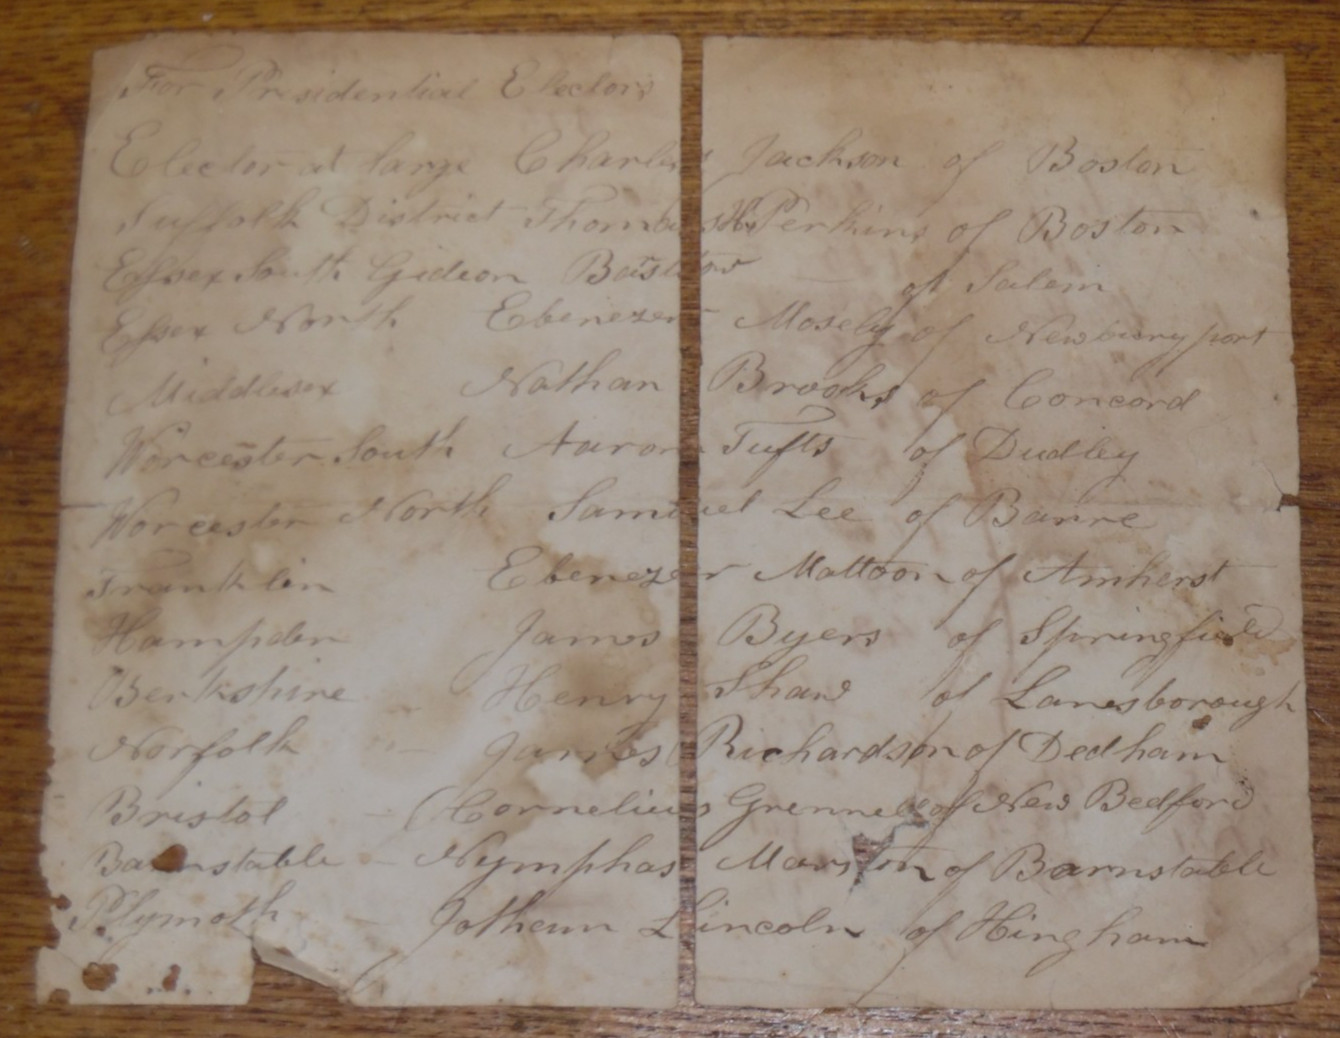 For Presidential Electors
Elector at large Charles Jackson of Boston
Suffolk District Thomas H. Perkins of Boston
Essex South Gideon Barstow of Salem
Essex North Ebenezer Mosely of Newburyport
Middlesex Nathan Brooks of Concord
Worcester South Aaron Tufts of Dudley
Worcester North Samuel Lee of Barre
Franklin Ebenezer Mattoon of Amherst
Hampden James Byers of Springfield
Berkshire Henry Shaw of Lanesborough
Norfolk - James Richardson of Dedham
Bristol - Cornelius Grennel of New Bedford
Barnstable - Nymphas Marston of Barnstable
Plymoth - Jotham Lincoln of Hingham